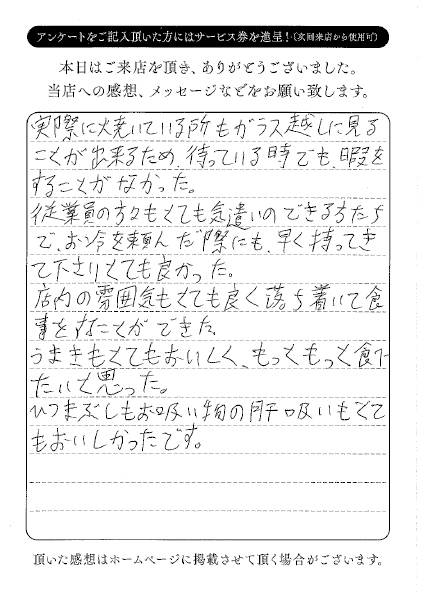 アンケートをご記入頂いた方にはサービス券を進呈！（次回来店から使用可）
本日はご来店を頂き、ありがとうございました。
当店への感想、メッセージなどをお願い致します。
実際に焼いている所もガラス越しに見る
ことが出来るため、待っている時でも、暇を
することがなかった。
従業員の方々もとても気遣いのできる方たち
で、お冷を頼んだ際にも、早く持ってき
て下さりとても良かった。
店内の雰囲気もとても良く落ち着いて食
事をすることができた。
うまきもとてもおいしく、もっともっと食べ
たいと思った。
ひつまぶしもお吸い物の肝吸いもとて
もおいしかったです。
頂いた感想はホームページに掲載させて頂く場合がございます。